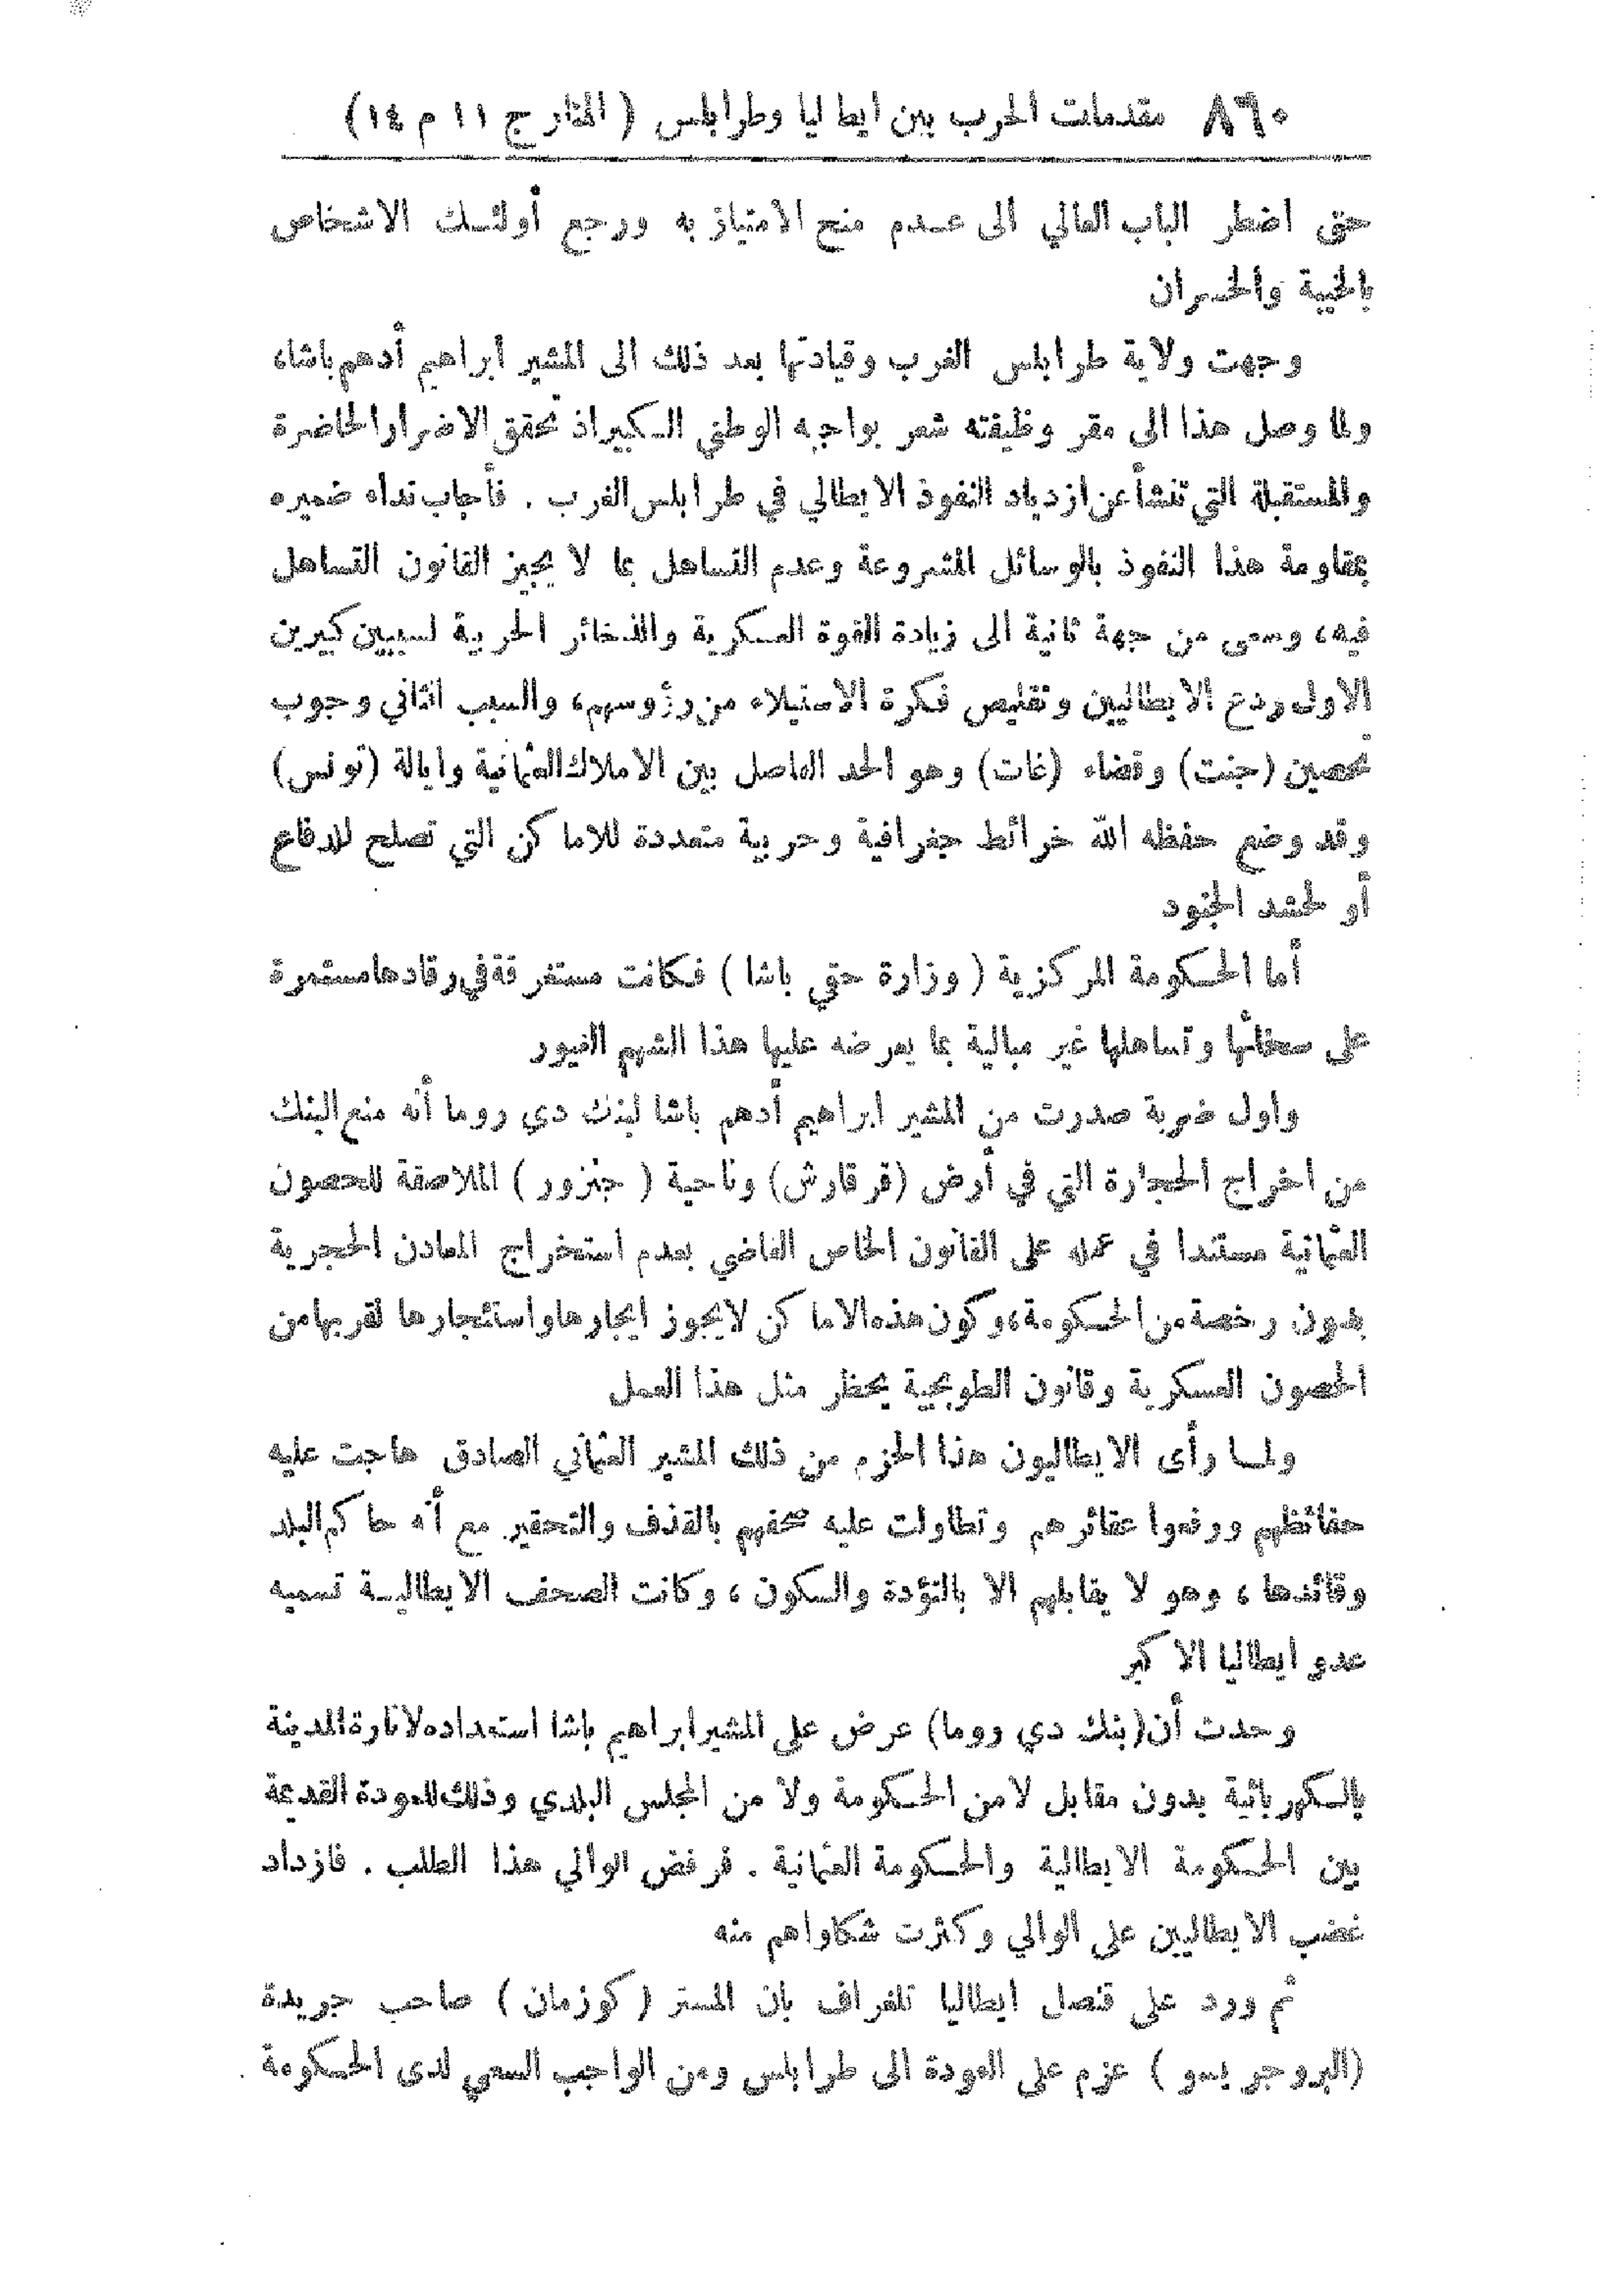 ٨٦٠ مقدمات الحرب بين ايطاليا وطرابلس ( المنار ج ١١ م ١٤)
حتى اضطر الباب العالي الى عدم منح الامتياز به ورجع أولئك الاشخاص
بالخيبة والخسران
وجهت ولاية طرابلس الغرب وقيادتها بعد ذلك الى المشير ابراهيم أدهم باشا،
ولما وصل هذا الى مقر وظيفته شعر بواجبه الوطني الكبير اذ تحقق الاضرار الحاضرة
والمستقبلة التي تنشأ عن ازدياد النفوذ الايطالي في طرابلس الغرب . فأجاب نداء ضميره
بمقاومة هذا النفوذ بالوسائل المشروعة وعدم التساهل بما لا يجيز القانون التساهل
فيه، وسعى من جهة ثانية الى زيادة القوة العسكرية والذخائر الحربية لسببين كبيرين
الاول ردع الايطاليين وتقليص فكرة الاستيلاء من رؤوسهم، والسبب الثاني وجوب
تحصين (جنت) وقضاء (غات) وهو الحد الفاصل بين الاملاك العثمانية وايالة (تونس)
وقد وضع حفظه الله خرائط جغرافية وحربية متعددة للاماكن التي تصلح للدفاع
أو لحشد الجنود
أما الحكومة المركزية ( وزارة حقي باشا ) فكانت مستغرقة في رقادها مستمرة
على سخافتها وتساهلها غير مبالية بما يعرضه عليها هذا الشهم الغيور
وأول ضربة صدرت من المشير ابراهيم أدهم باشا لبنك دي روما أنه منع البنك
من اخراج الحجارة التي في أرض (قرقارش) وناحية ( جنزور ) الملاصقة للحصون
العثمانية مستندا في عمله على القانون الخاص القاضي بعدم استخراج المعادن الحجرية
بدون رخصة من الحكومة، وكون هذه الاماكن لايجوز ايجارها واستئجارها لقربها من
الحصون العسكرية وقانون الطوبجية يحظر مثل هذا العمل
ولما رأى الايطاليون هذا الحزم من ذلك المشير العثماني الصادق هاجت عليه
حفائظهم ورفعوا عقائرهم وتطاولت عليه صحفهم بالقذف والتحقير مع أنه حاكم البلد
وقائدها ، وهو لا يقابلهم الا بالتؤدة والسكون ، وكانت الصحف الايطالية تسميه
عدو ايطاليا الاكبر
وحدث أن (بنك دي روما) عرض على المشير ابراهيم باشا استعداده لانارة المدينة
بالكهربائية بدون مقابل لامن الحكومة ولا من المجلس البلدي وذلك للمودة القديمة
بين الحكومة الايطالية والحكومة العثمانية . فرفض الوالي هذا الطلب . فازداد
غضب الايطاليين على الوالي وكثرت شكاواهم منه
ثم ورد على قنصل ايطاليا تلغراف بان المستر ( كوزمان ) صاحب جريدة
(البروجريسو ) عزم على العودة الى طرابلس ومن الواجب السعي لدى الحكومة